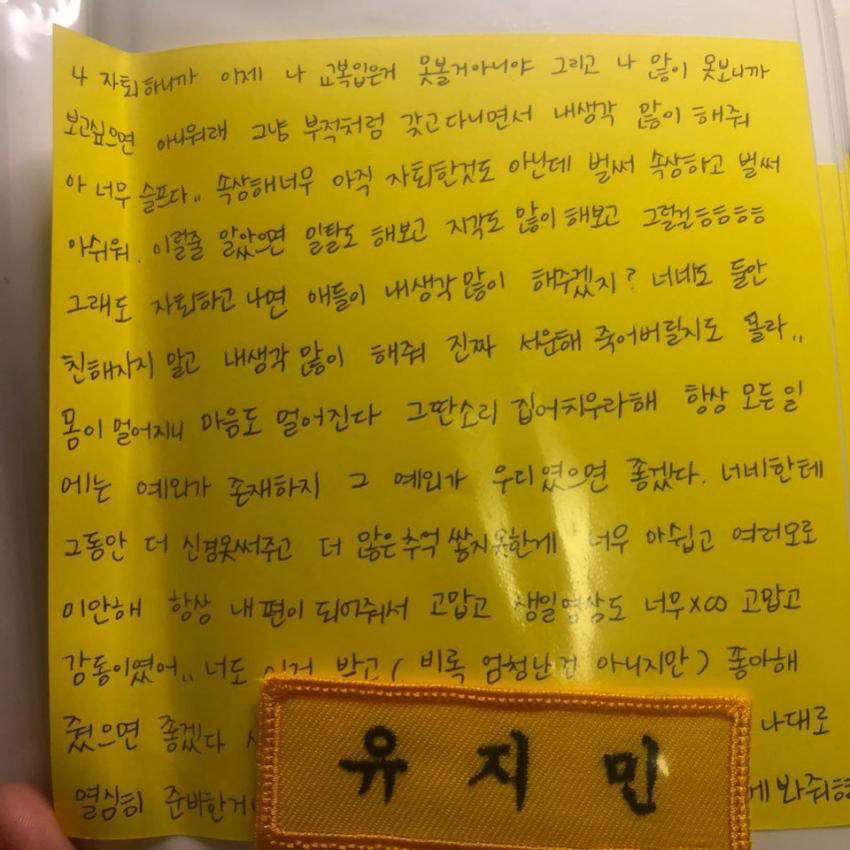 나 자퇴하니까 이제 나 교복입은거 못볼거아니야 그리고 나 많이 못보니까
보고싶으면 아니워래 그냥 부적처럼 갖고다니면서 내생각 많이 해줘
아 너무 슬프다.. 속상해너무 아직 자퇴한것도 아닌데 벌써 속상하고 벌써
아쉬워. 이럴줄 알았으면 일탈도 해보고 지각도 많이 해보고 그럴걸ㅎㅎㅎㅎ
그래도 자퇴하고 나면 애들이 내생각 많이 해주겠지? 너네도 둘만
친해지지 말고 내생각 많이 해줘 진짜 서운해 죽어버릴지도 몰라..
몸이 멀어지니 마음도 멀어진다 그딴소리 집어치우라해 항상 모든 일
에는 예외가 존재하지 그 예외가 우리였으면 좋겠다. 너네한테
그동안 더 신경못써주고 더 많은추억 쌓지못한게 너무 아쉽고 여러모로
미안해 항상 내편이 되어줘서 고맙고 생일영상도 너무x∞ 고맙고
감동이였어.. 너도 이거 받고 (비록 엄청난건 아니지만) 쫗아해
줬으면 좋겠다 나대로
열심히 준비한거 게 봐줘ㅎㅎ
유지민